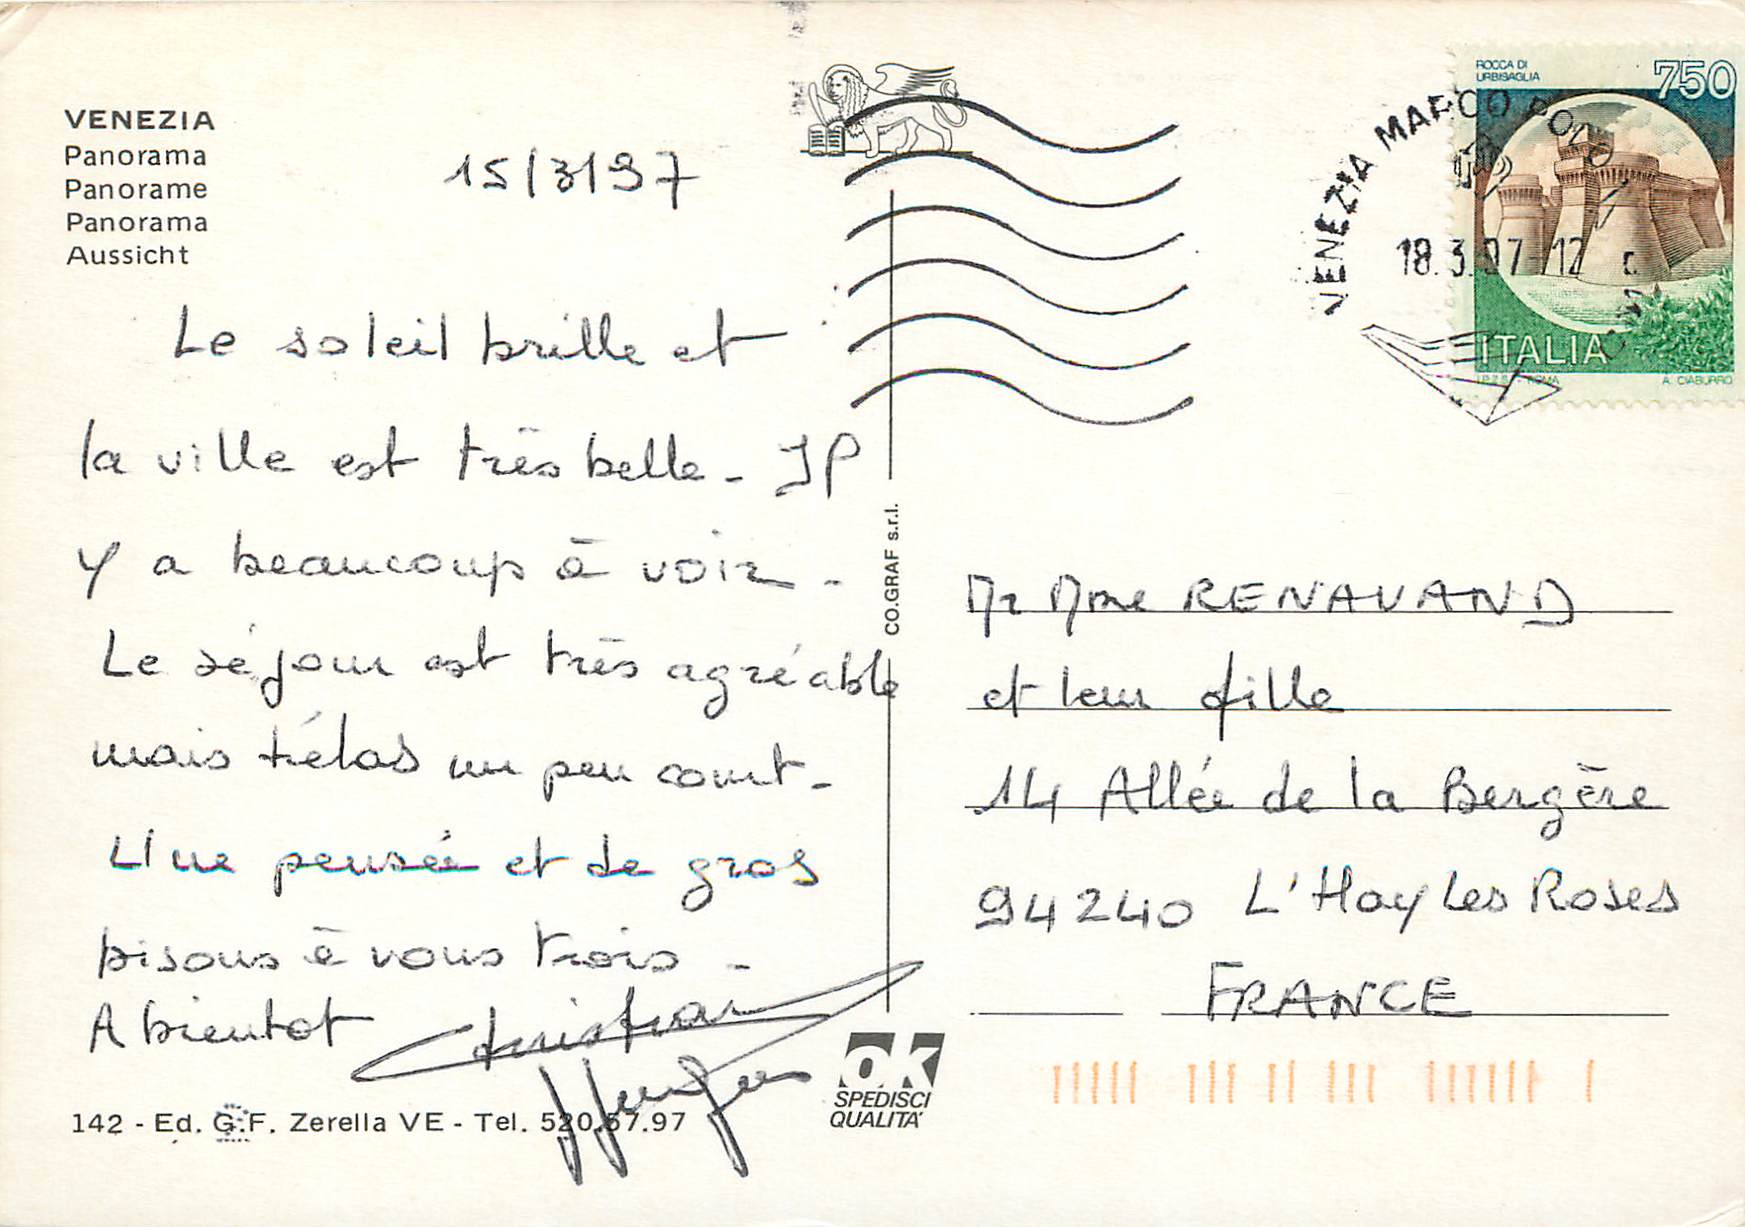 VENEZIA
Panorama
Panorame
Panorama
Aussicht
15/3/97
Le soleil brille et
la ville est très belle - IP
y a beaucoup à voir -
Le séjour est très agréable
mais hélas un peu court -
Une pensée et de gros
bisous à vous trois -
A bientot Christian
142 - Ed. G.F. Zerella VE - Tel. 520.67.97
CO.GRAF s.r.l.
OK
SPEDISCI
QUALITA'
VENEZIA MARCO POLO
18.3.97-12
ROCCA DI
URBISAGLIA
750
ITALIA
I.P.Z.S. - ROMA
A. CIABURRO
Mr Mme RENAVAND
et leur fille
14 Allée de la Bergère
94240 L'Hay Les Roses
FRANCE